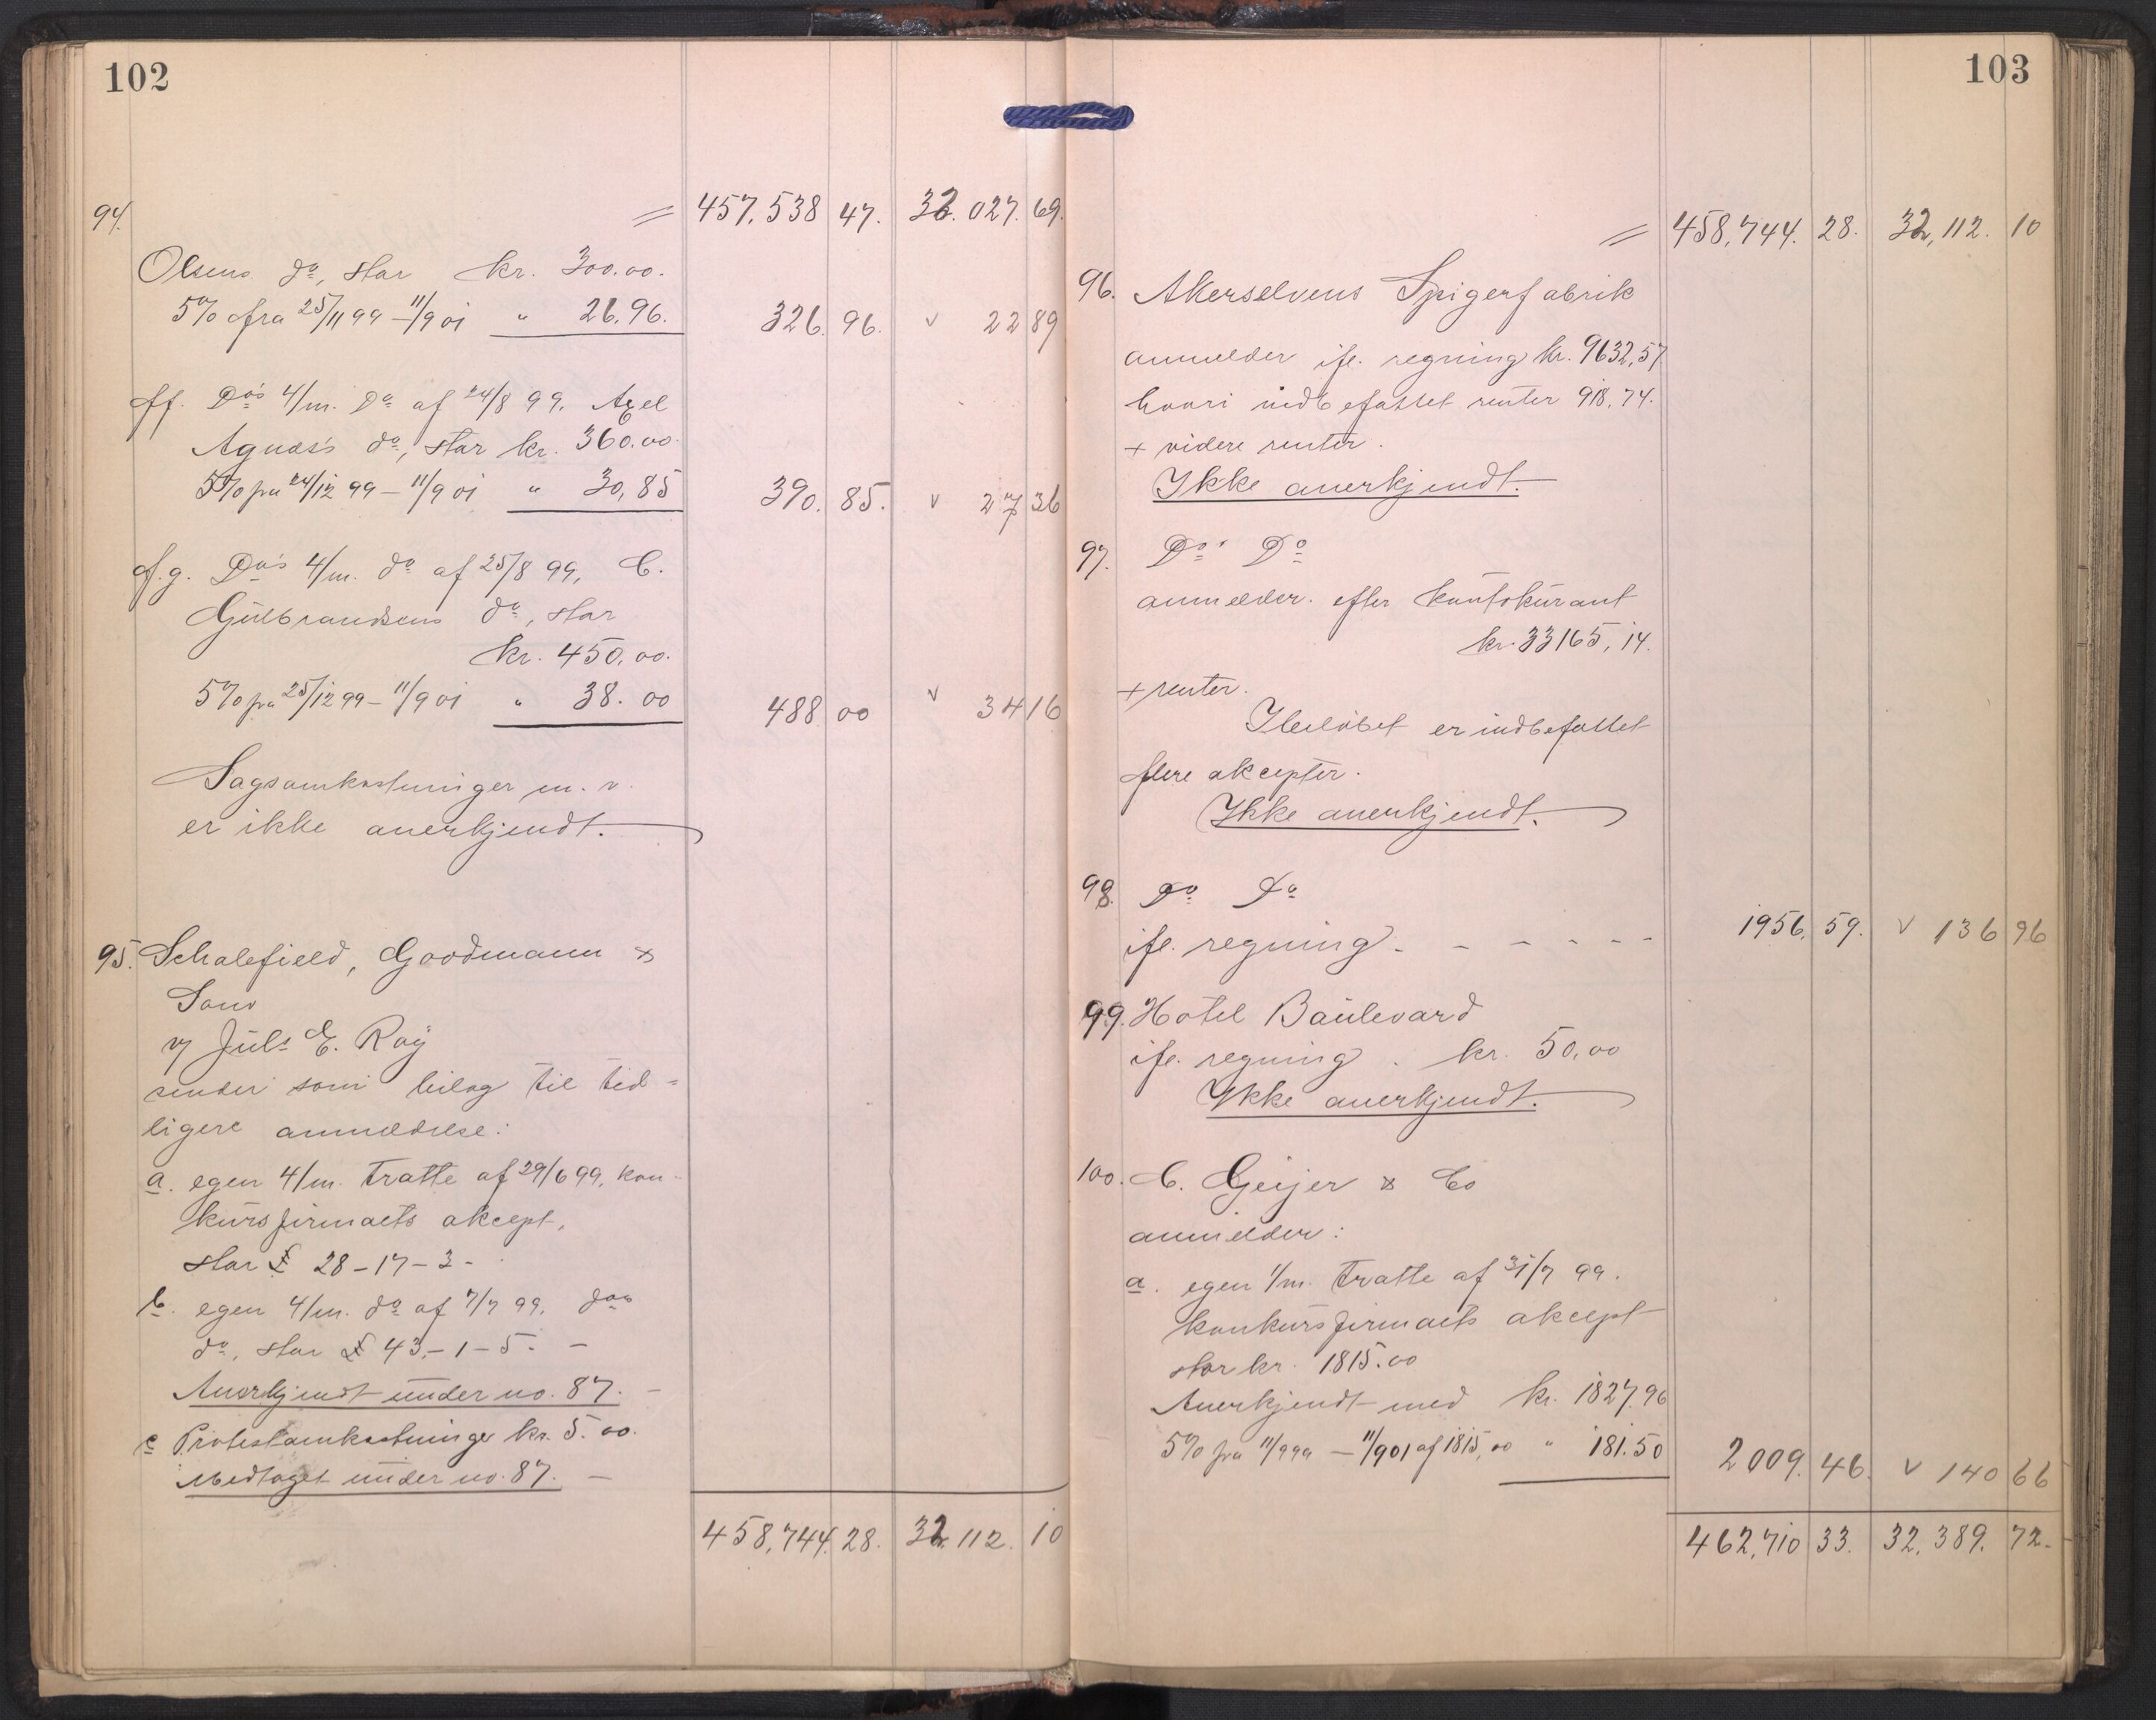 102
94. = 457,538 47. 32.027.69.
Olsens do, stor kr. 300.00.
5% fra 25/11 99 – 11/9 01 " 26.96. 326.96. v 22 89
ff. Do's 4/m. Do af 24/8 99, Axel
Agnæs's do, stor kr. 360.00.
5% fra 24/12 99 – 11/9 01 " 30,85 390.85. v 27 36
f.g. Do's 4/m. do af 25/8 99, C.
Gulbrandsens do, stor
kr. 450,00.
5% fra 25/12 99 – 11/9 01 " 38.00 488 00 v 34 16
Sagsomkostninger m.v.
er ikke anerkjendt.
95. Scholefield, Goodmann &
Sons
v/ Juls E. Roÿ
sender som bilag til tid=
ligere anmeldelse:
a. egen 4/m. tratte af 29/6 99, kon-
kursfirmaets akcept,
stor £ 28–17–3–
b. egen 4/m. do af 7/7 99. dos
do, stor £ 43,–1–5. –
Anerkjendt under no. 87. –
c Protestomkostninger kr. 5.00.
Medtaget under no. 87. –
458,744.28. 32.112.10
103
= 458,744.28. 32,112.10
96. Akerselvens Spigerfabrik
anmelder ifl. regning kr. 9632,57
hvori indbefattet renter 918.74.
+ videre renter.
Ikke anerkjendt.
97. Do. Do
anmelder efter kontokurant
kr. 33165,14.
+ renter.
I beløbet er indbefattet
flere akcepter.
Ikke anerkjendt.
98. Do Do
ifl. regning. – – – – – 1956.59. v 136 96
99. Hotel Boulevard
ifl. regning. kr. 50,00
Ikke anerkjendt.
100. C. Geijer & Co
anmelder:
a. egen 1/m. tratte af 31/7 99.
konkursfirmaets akcept
stor kr. 1815.00
Anerkjendt med kr. 1827.96
5% fra 11/9 99 – 11/9 01 af 1815,00 " 181.50 2009.46. v 140 66
462,710 33. 32.389.72.